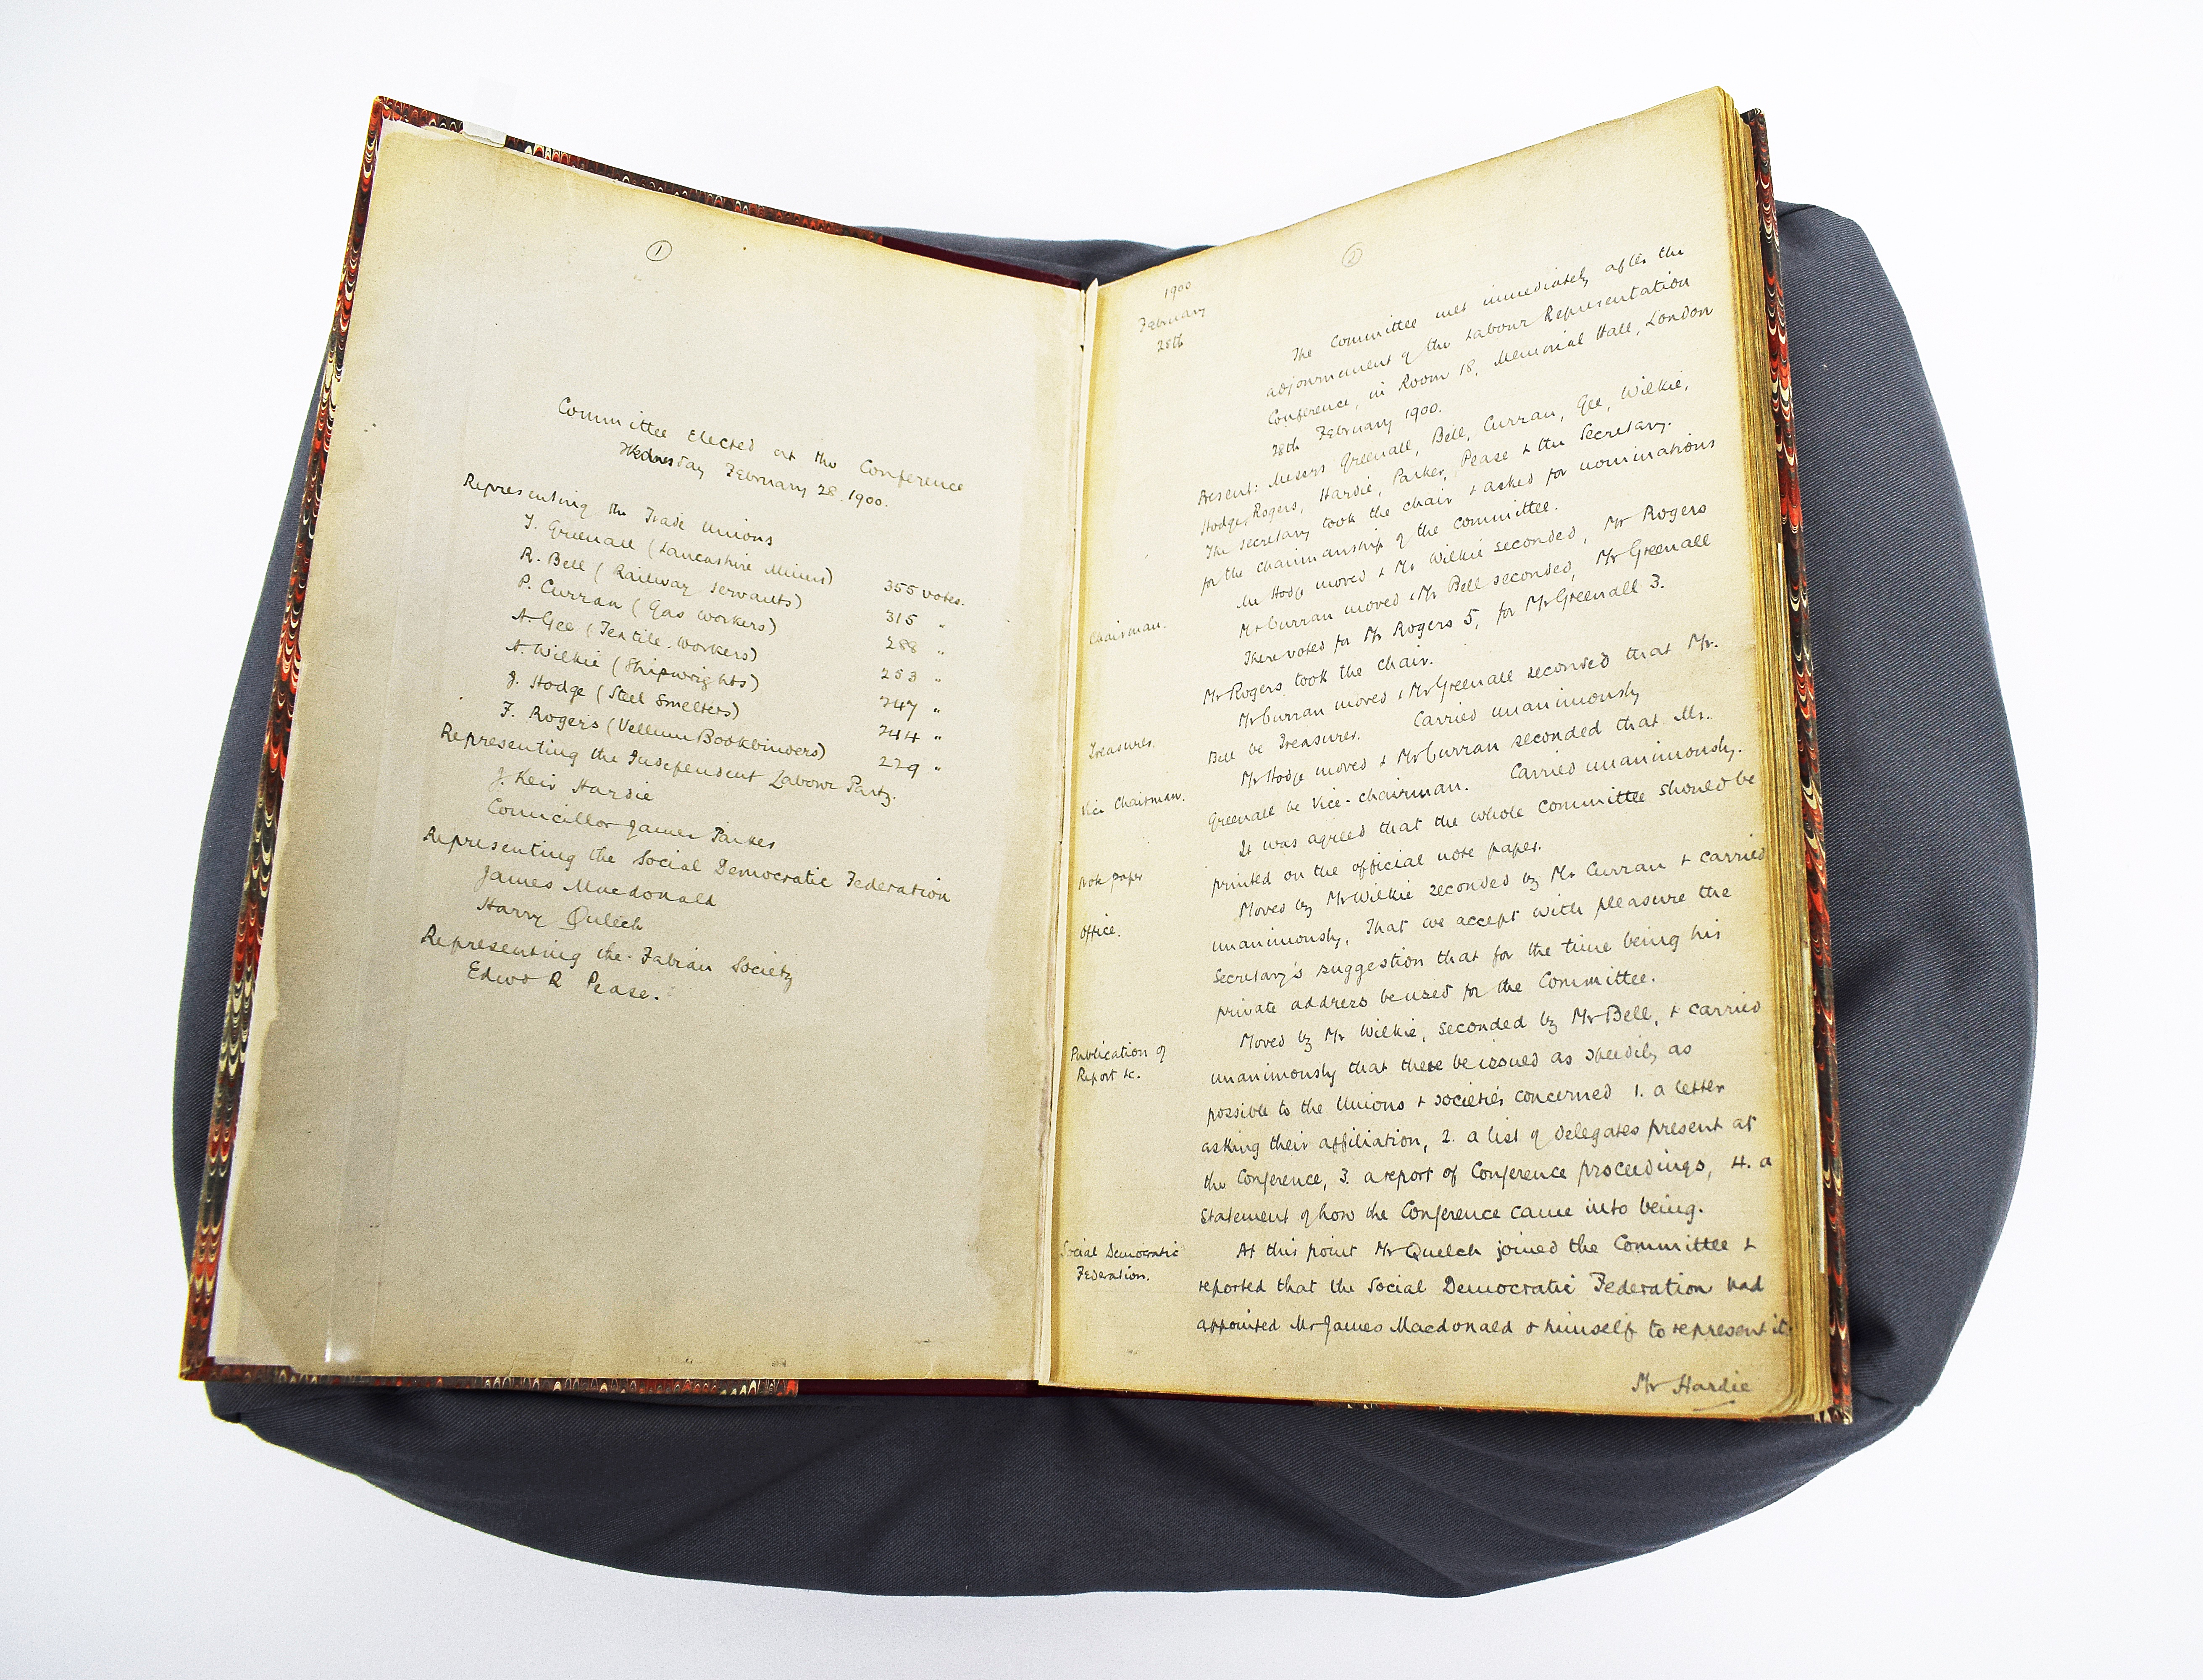 1
Committee Elected at the Conference
Wednesday February 28. 1900.
Representing the Trade Unions
T. Greenall (Lancashire Miners) 355 votes.
R. Bell (Railway Servants) 315 "
P. Curran (Gas workers) 288 "
A. Gee (Textile workers) 253 "
A. Wilkie (Shipwrights) 247 "
J. Hodge (Steel Smelters) 244 "
F. Rogers (Vellum Bookbinders) 229 "
Representing the Independent Labour Party.
J. Keir Hardie
Councillor James Parker
Representing the Social Democratic Federation
James Macdonald
Harry Quelch
Representing the Fabian Society
Edwd R Pease.
2
1900
February
28th
The Committee met immediately after the
adjournment of the Labour Representation
Conference, in Room 18, Memorial Hall, London
28th February 1900.
Present: Messrs Greenall, Bell, Curran, Gee, Wilkie,
Hodge, Rogers, Hardie, Parker, Pease & the Secretary.
The Secretary took the chair & asked for nominations
for the chairmanship of the Committee.
Chairman.
Mr Hodge moved & Mr Wilkie seconded, Mr Rogers
Mr Curran moved & Mr Bell seconded, Mr Greenall
There voted for Mr Rogers 5, for Mr Greenall 3.
Mr Rogers took the chair.
Treasurer.
Mr Curran moved & Mr Greenall seconded that Mr.
Bell be Treasurer. Carried unanimously
Vice Chairman.
Mr Hodge moved & Mr Curran seconded that Mr.
Greenall be Vice-chairman. Carried unanimously.
Note paper
It was agreed that the whole Committee should be
printed on the official note paper.
Office.
Moved by Mr Wilkie seconded by Mr Curran & carried
unanimously, That we accept with pleasure the
Secretary's suggestion that for the time being his
private address be used for the Committee.
Publication of
Report &c.
Moved by Mr Wilkie, seconded by Mr Bell, & carried
unanimously that there be issued as speedily as
possible to the Unions & societies concerned 1. a letter
asking their affiliation, 2. a list of delegates present at
the Conference, 3. a report of Conference proceedings, 4. a
statement of how the Conference came into being.
Social Democratic
Federation.
At this point Mr Quelch joined the Committee &
reported that the Social Democratic Federation had
appointed Mr James Macdonald & himself to represent it.
Mr Hardie